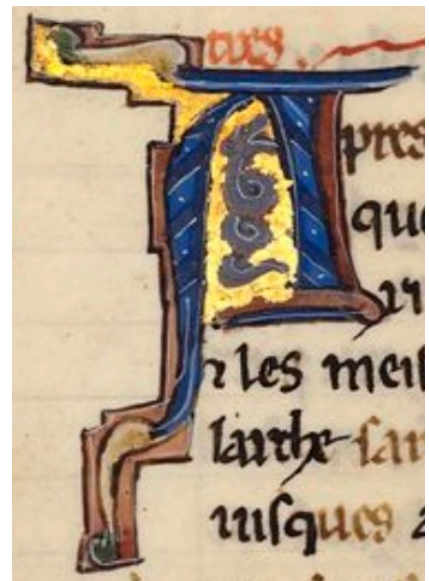 tres.
Apres
que
⁊ les meil
larche
iusques a